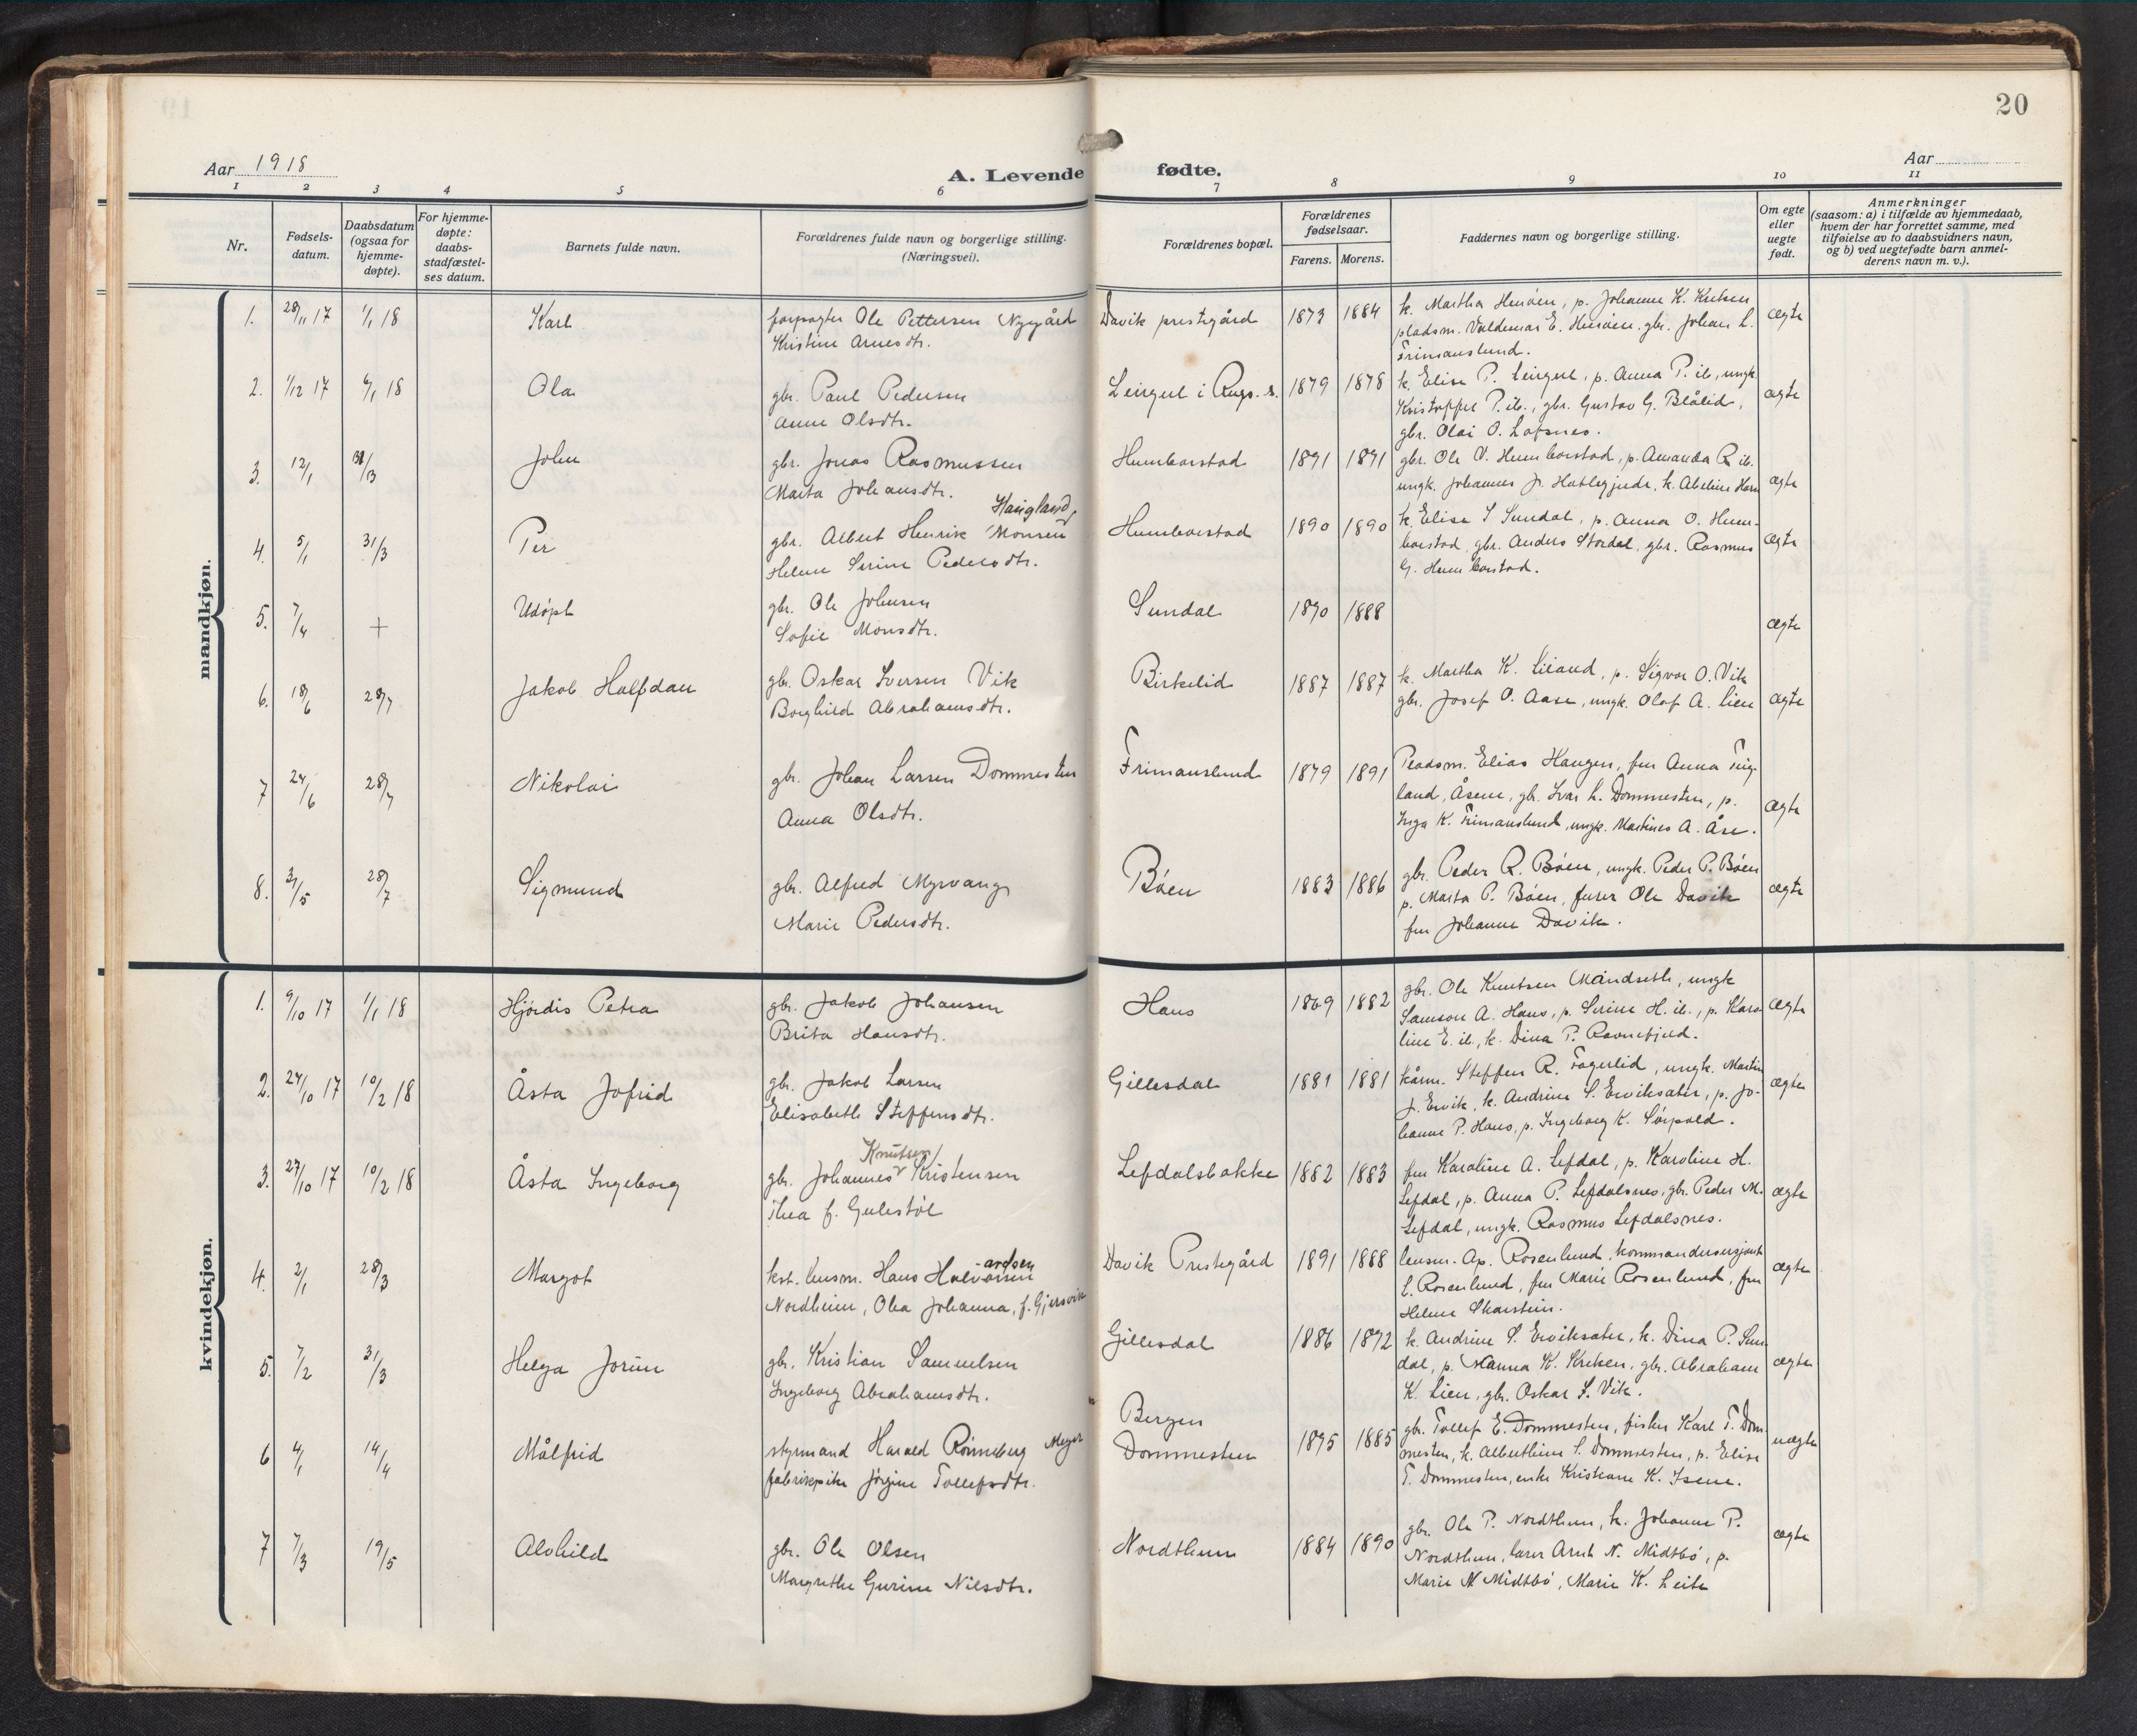 20
Aar 1918
A. Levende fødte.
Aar
1 2 3 4 5 6 7 8 9 10 11
Nr.
Fødsels-
datum.
Daabsdatum
(ogsaa for
hjemme-
døpte).
For hjemme-
døpte:
daabs-
stadfæstel-
ses datum.
Barnets fulde navn.
Forældrenes fulde navn og borgerlige stilling.
(Næringsvei).
Forældrenes bopæl.
Forældrenes
fødselsaar.
Farens. Morens.
Faddernes navn og borgerlige stilling.
Om egte
eller
uegte
født.
Anmerkninger
(saasom: a) i tilfælde av hjemmedaab,
hvem der har forrettet samme, med
tilføielse av to daabsvidners navn,
og b) ved uegtefødte barn anmel-
derens navn m. v.).
mandkjøn.
1. 28/11 17 1/1 18 Karl
forpagter Ole Pettersen Nygård
Kristine Arnesdtr.
Davik prestegård 1873 1884
k. Martha Husøen, p. Johanne K. Knutsen
pladsm. Valdemar E. Husøen, gbr. Johan L.
Frimanslund.
ægte
2. 1/12 17 6/1 18 Ola
gbr. Paul Pedersen
Anne Olsdtr.
Leirgul i Bugs. s. 1879 1878
k. Elise P. Leirgul, p. Anna P. ib., ungk.
Kristoffer P. ib., gbr. Gustav G. Blålid,
gbr. Olai O. Lofsnes.
ægte
3. 12/1 31/3 John
gbr. Jonas Rasmussen
Marta Johansdtr.
Humborstad 1891 1891
gbr. Ole V. Humborstad, p. Amanda R. ib.
ungk. Johannes J. Hatlegjerde, k. Abeline Hum
ægte
4. 5/1 31/3 Per
Haugland
gbr. Albert Henrik Monsen
Helene Serine Pedersdtr.
Humborstad 1890 1890
k. Elise S Sundal, p. Anna O. Hum-
borstad, gbr. Anders Stordal, gbr. Rasmus
G. Humborstad.
ægte
5. 7/4 + Udøpt
gbr. Ole Johnsen
Sofie Monsdtr.
Sundal 1890 1888
ægte
6. 18/6 28/7 Jakob Halfdan
gbr. Oskar Iversen Vik
Borghild Abrahamsdtr.
Birkelid 1887 1887
k. Martha K. Liland, p. Sigvor O. Vik
gbr. Josef O. Aase, ungk. Olaf A. Lien
ægte
7 24/6 28/7 Nikolai
gbr. Johan Larsen Dommesten
Anna Olsdtr.
Frimanslund 1879 1891
Pladsm. Elias Haugen, fru Anna Teig-
land, Åsene, gbr. Ivar L. Dommesten, p.
Inga K. Frimanslund, ungk. Martines A. Åse.
ægte
8. 3/5 28/7 Sigmund
gbr. Alfred Myrvang
Marie Pedersdtr.
Bøen 1883 1886
gbr. Peder R. Bøen, ungk. Peder P. Bøen
p. Marta P. Bøen, furer Ole Davik
fru Johanne Davik.
ægte
kvindekjøn.
1. 9/10 17 1/1 18 Hjørdis Petra
gbr. Jakob Johansen
Brita Hansdtr.
Haus 1869 1882
gbr. Ole Knutsen Måndseth, ungk
Samson A. Haus, p. Serine H. ib., p. Karo-
line E. ib., k. Dina P. Ravnefjeld.
ægte
2. 24/10 17 10/2 18 Åsta Jofrid
gbr. Jakob Larsen
Elisabeth Steffensdtr.
Gillesdal 1881 1881
kårm. Steffen R. Fagerlid, ungk. Martin
J. Ervik, k. Andrine S. Erviksater, p. Jo-
hanne P. Haus, p. Ingeborg K. Sørpold.
ægte
3. 27/10 17 10/2 18 Åsta Ingeborg
Knutsen
gbr. Johannes Kristensen
Thea f. Gulestøl
Lefdalsbakke 1882 1883
fru Karoline A. Lefdal, p. Karoline H.
Lefdal, p. Anna P. Lefdalsnes, gbr. Peder M.
Lefdal, ungk. Rasmus Lefdalsnes.
ægte
4. 2/1 28/3 Margot
kst. lensm. Hans Halvardsen
Nordheim, Olea Johanna, f. Gjersvik
Davik Prestegård 1891 1888
lensm. Ap. Rosenlund, kommandersersjant
L. Rosenlund, fru Marie Rosenlund, fru
Helene Skarstein.
ægte
5. 7/2 31/3 Helga Jorun
gbr. Kristian Samuelsen
Ingeborg Abrahamsdtr.
Gillesdal 1886 1892
k. Andrine S. Erviksater, k. Dina P. Sun-
dal, p. Nanna K. Kriken, gbr. Abraham
K. Lien, gbr. Oskar I. Vik.
ægte
6 4/1 14/4 Målfrid
styrmand Harald Rønneberg Meyer
fabrikpike Jørgine Tollefsdtr.
Bergen
Dommesten 1895 1885
gbr. Tollef E. Dommesten, fisker Karl T. Dom-
mesten, k. Alberthine S. Dommesten, p. Elise
T. Dommesten, enke Kristiane K. Isene.
uægte
7 7/3 19/5 Alvhild
gbr. Ole Olsen
Margrethe Gurine Nilsdtr.
Nordthun 1884 1890
gbr. Ole P. Nordthun, k. Johanne P.
Nordthun, lærer Arnt N. Midtbø, p.
Marie N Midtbø, Marie K. Leite
ægte